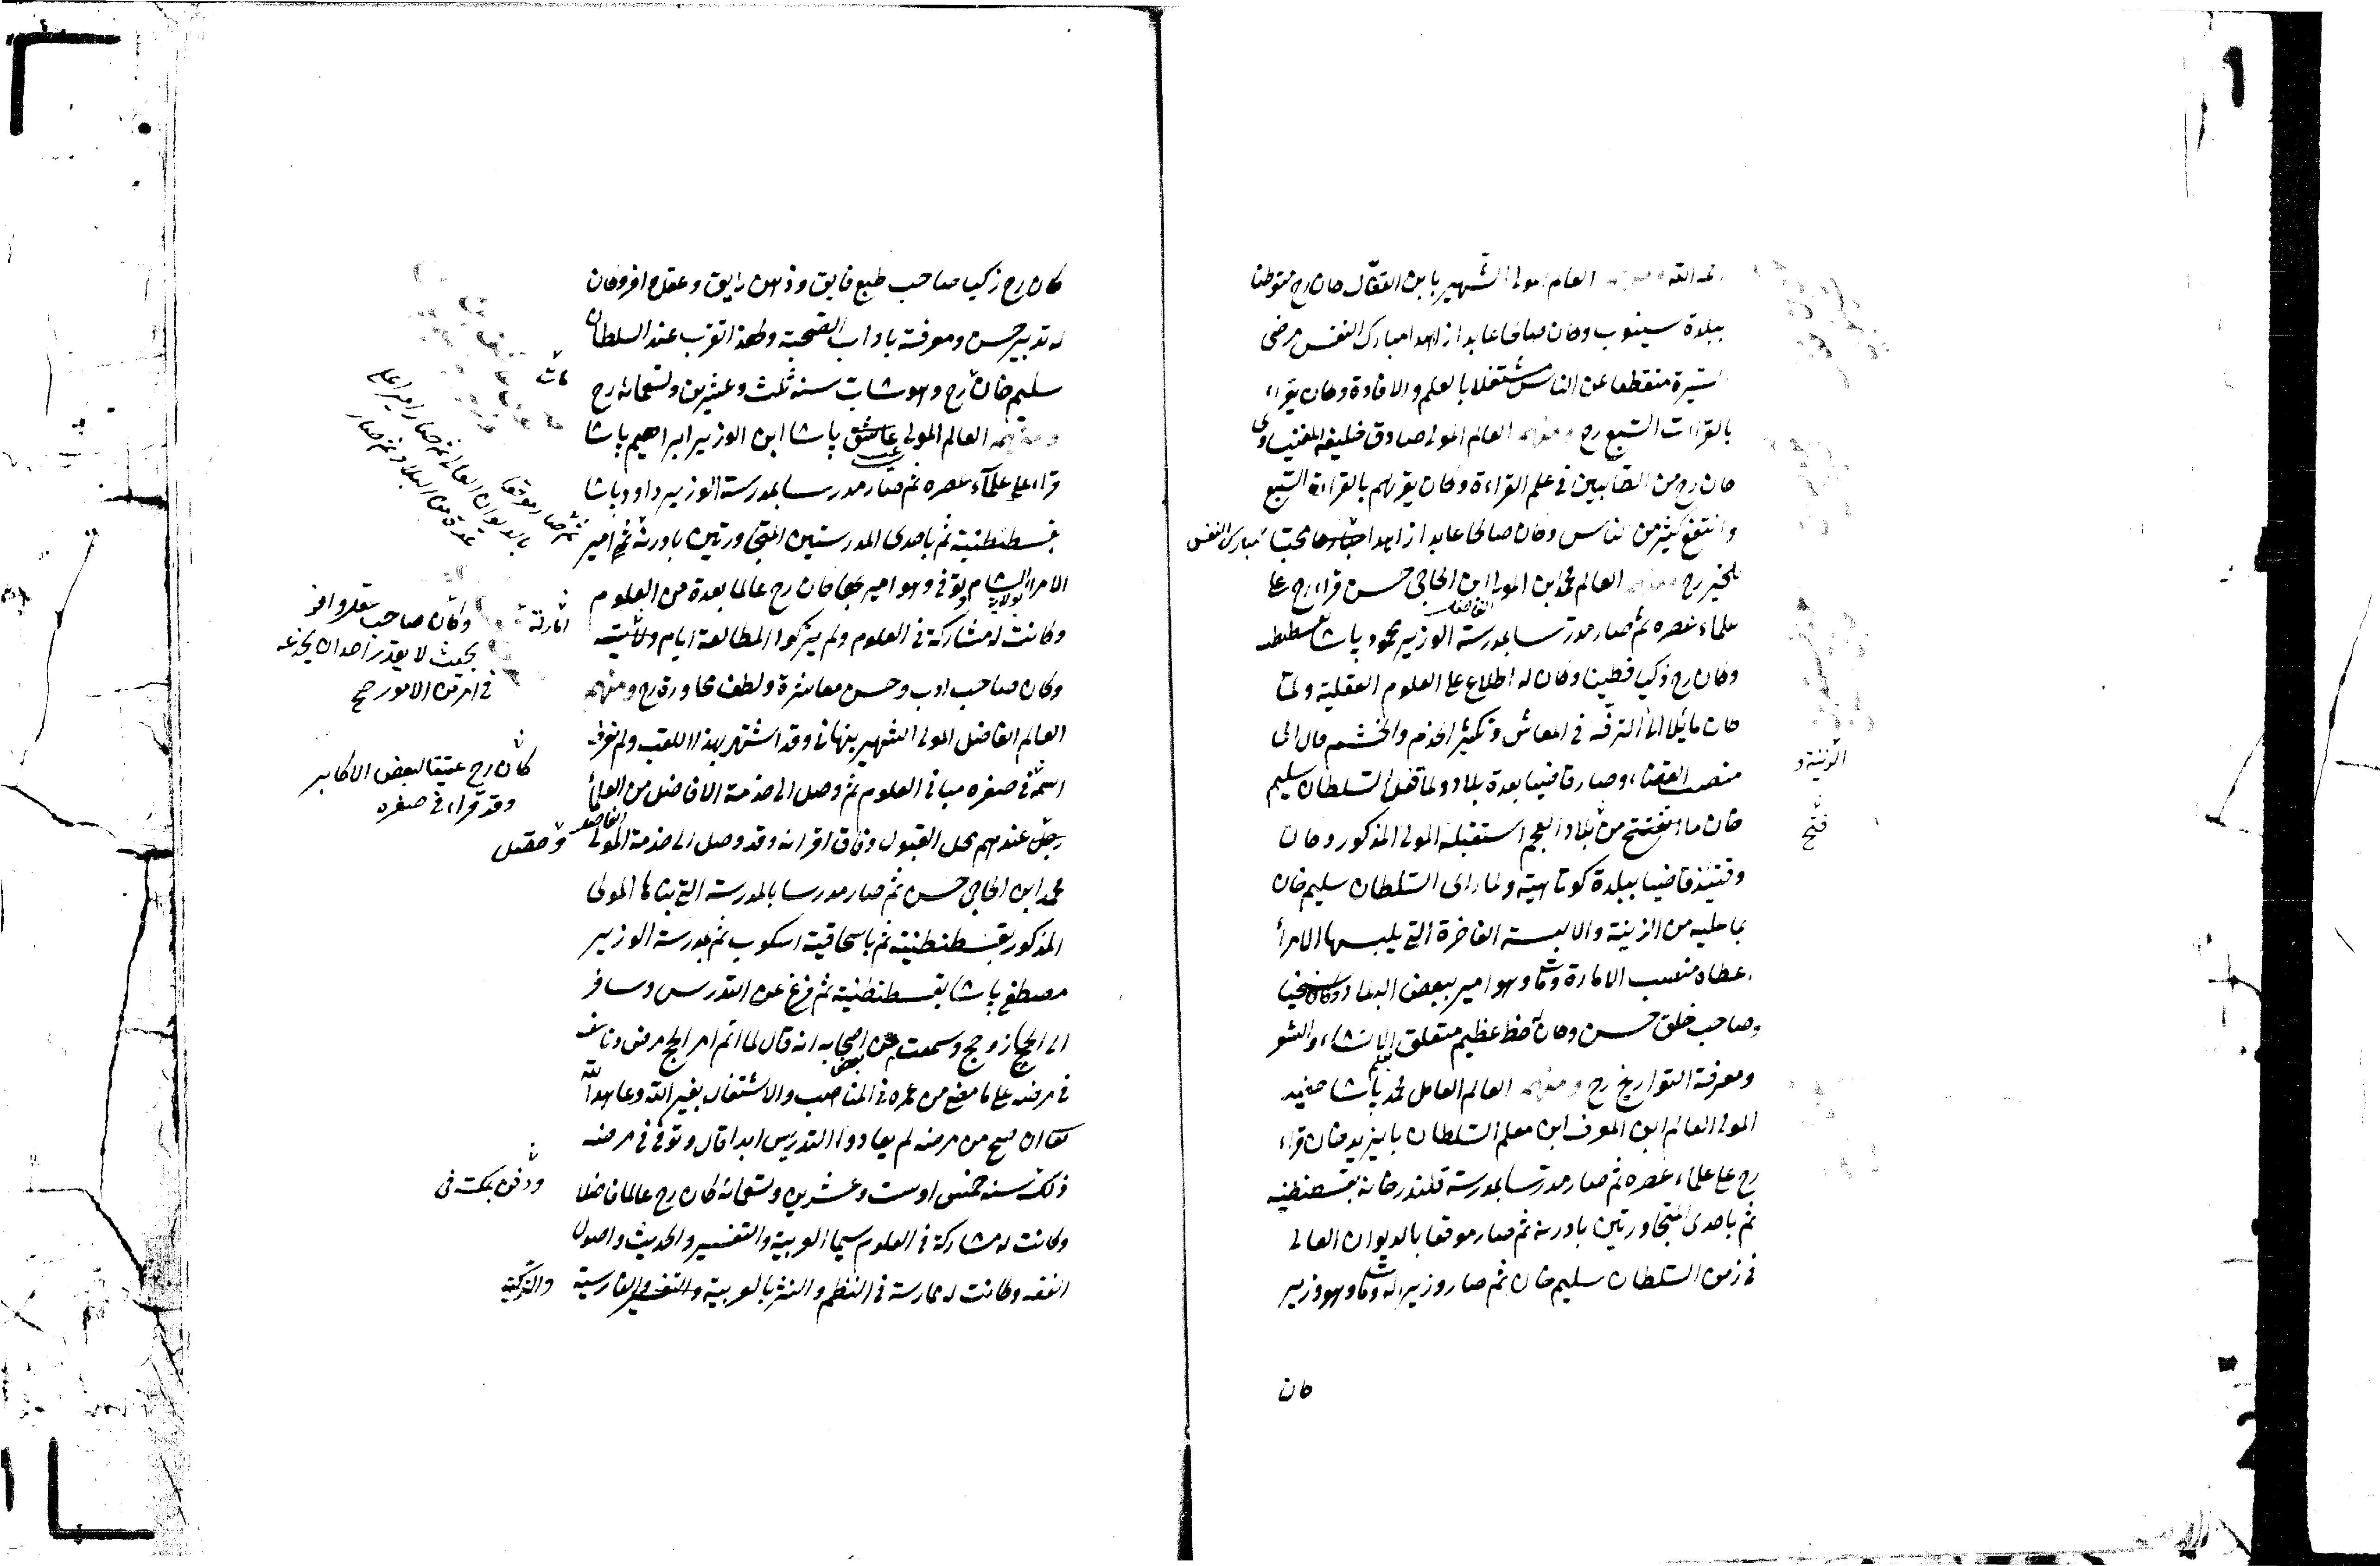 رحمه الله ومنهم العالم المولى الشهير بابن القفال كان رح متوطنا
ببلدة سينوب وكان صالحا عابدا زاهدا مبارك النفس مرضي
السيرة منقطعا عن الناس مشتغلا بالعلم والافادة وكان يقراء
بالقراات السبع رح ومنهم العالم المولى صادق خليفه المغنيساوى
كان رح من الصالحين في علم القراءة وكان يقرئهم بالقراءة السبع
وانتفع كثير من الناس وكان صالحا عابدا زاهدا محبا مبارك النفس
للخير رح ومنهم العالم محمد ابن المولى ابن الحاجي حسن قراء رح على
علماء عصره ثم صار مدرسا بمدرسة الوزير محمود باشا بقسطنط
الفاضل
وكان رح ذكيا فطينا وكان له اطلاع على العلوم العقلية ولما
كان مائلا الى الترفه في المعاش وتكثير الخدم والحشم مال الى
منصب القضاء وصار قاضيا بعدة بلاد ولما قفل السلطان سليم
الزينة و
خان ما افتتح من بلاد العجم استقبله المولى المذكور وكان
فتح
وقتئذ قاضيا ببلدة كوتاهية ولما راى السلطان سليم خان
بما عليه من الزينة والالبسة الفاخرة التي يلبسها الامرأ
اعطاه منصب الامارة ومات وهو امير ببعض البلاد وكان سخيا
وصاحب خلق حسن وكان له حظ عظيم متعلق الانشاء والشعر
بعلم
ومعرفة التواريخ رح ومنهم العالم العامل محمد باشا حفيد
المولى العالم ابن المعرف ابن معلم السلطان بايزيد خان قراء
رح على علماء عصره ثم صار مدرسا بمدرسة قلندرخانه بقسطنطنيه
ثم باحدى المتجاورتين بادرنه ثم صار موقعا بالديوان العالى
في زمن السلطان سليم خان ثم صار وزيرا له ومات وهو وزير
كان
كان رح زكيا صاحب طبع فايق وذهن رايق وعقل وافر وكان
له تدبير حسن ومعرفة باداب الصحبة ولهذا تقرب عند السلطان
سليم خان رح وهو شاب سنه ثلث وعشرين وتسعمائه رح
مات
ومنهم العالم المولى عاشق باشا ابن الوزير ابراهيم باشا
قراء على علمآء عصره ثم صار مدرسا بمدرسة الوزير داود باشا
بقسطنطنية ثم باحدى المدرستين المتجاورتين بادرنه ثم امير
ثم صار موقعا
بالديوان العالى ثم صار اميرا على
عدة من البلاد ثم صار
الامراء الشام توفى وهو امير بها كان رح عالما بعدة من العلوم
بولاية
وكانت له مشاركة في العلوم ولم يتركوا المطالعة ايام ولايته
امارته
وكان صاحب عقل وافر
بحيث لا يقدر احد ان يخدعه
في امر من الامور صح
وكان صاحب ادب وحسن معاشرة ولطف محاورة رح ومنهم
العالم الفاضل المولى الشهير بنهانى وقد اشتهر بهذا اللقب ولم نعرف
كان رح عتيقا لبعض الاكابر
وقد قراء في صغره
اسمه في صغره مباني العلوم ثم وصل الى خدمة الافاضل من العلمأ
وحصل عندهم محل القبول وفاق اقرانه وقد وصل الى خدمة المولى
الفاضل
وحصل
محمد ابن الحاجى حسن ثم صار مدرسا بالمدرسة التي بناها المولى
المذكور بقسطنطنية ثم باسحاقية اسكوب ثم بمدرسة الوزير
مصطفى باشا بقسطنطنية ثم فرغ عن التدريس وسافر
الى الحجاز وحج وسمعت من اصحابه انه قال لما اتم امر الحج مرض وتاسف
بعض
في مرضه على ما مضى من عمره في المناصب والاشتغال بغير الله وعاهد الله
تعالى ان صح من مرضه لم يعاود التدريس ابدا قال وتوفى في مرضه
ودفن بمكة في
ذلك سنه خمس او ست وعشرين وتسعمائه كان رح عالما فاضلا
وكانت له مشاركة في العلوم سيما العربية والتفسير والحديث واصول
الفقه وكانت له ممارسة في النظم والنثر بالعربية والفارسية والتركية